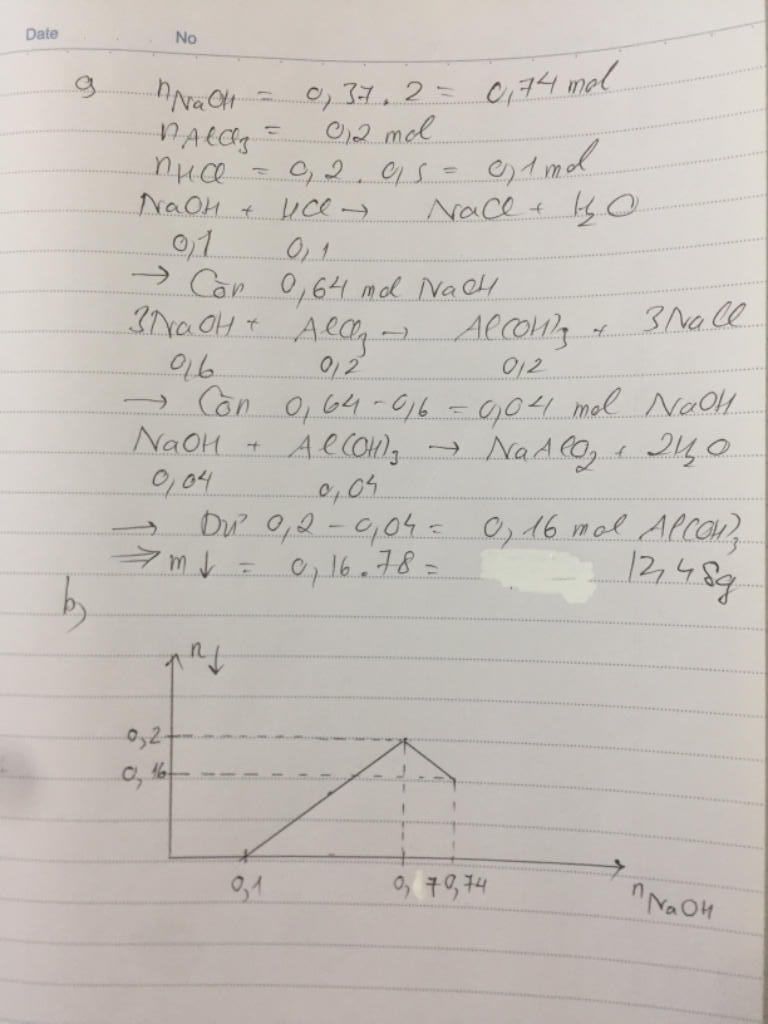 Date No
a) nNaOH = 0,37.2 = 0,74 mol
nAlCl3 = 0,2 mol
nHCl = 0,2 . 0,5 = 0,1 mol
NaOH + HCl → NaCl + H2O
0,1 0,1
→ Còn 0,64 mol NaOH
3NaOH + AlCl3 → Al(OH)3 + 3NaCl
0,6 0,2 0,2
→ Còn 0,64 - 0,6 = 0,04 mol NaOH
NaOH + Al(OH)3 → NaAlO2 + 2H2O
0,04 0,04
→ Dư 0,2 - 0,04 = 0,16 mol Al(OH)3
⇒ m↓ = 0,16.78 = 12,48g
b)
n↓
0,2
0,16
0,1 0,7 0,74
nNaOH